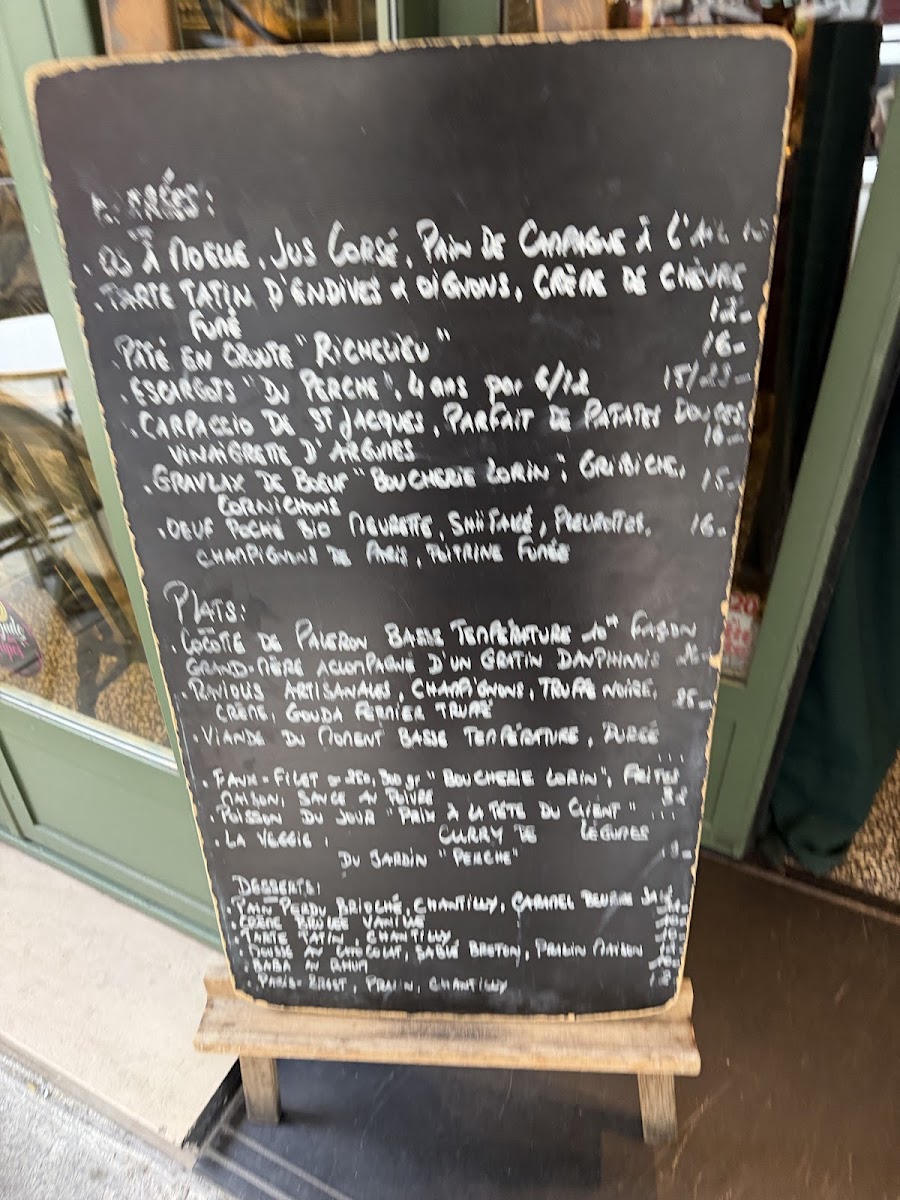 ENTRÉES:
. OS À MOELLE, JUS CORSÉ, PAIN DE CAMPAGNE À L'AIL
. TARTE TATIN D'ENDIVES & OIGNONS, CRÈME DE CHÈVRE
FUMÉ 12-
. PÂTÉ EN CROUTE "RICHELIEU" 16-
. ESCARGOTS "DU PERCHE", 4 ans par 6/12 15/
. CARPACCIO DE ST JACQUES, PARFAIT DE PATATES DOUCES,
VINAIGRETTE D'AGRUMES
. GRAVLAX DE BOEUF "BOUCHERIE LORIN", GRIBICHE, 15-
CORNICHONS
. OEUF POCHÉ BIO MEURETTE, SHIITAKÉ, PLEUROTTES, 16-
CHAMPIGNONS DE PARIS, POITRINE FUMÉE
PLATS:
. COCOTE DE PALERON BASSE TEMPÉRATURE FAÇON
GRAND-MÈRE ACCOMPAGNÉ D'UN GRATIN DAUPHINOIS
. RAVIOLIS ARTISANALES, CHAMPIGNONS, TRUFFE NOIRE,
CRÈME, GOUDA FERMIER TRUFFÉ 25-
. VIANDE DU MOMENT BASSE TEMPÉRATURE, PURÉE
...
. FAUX-FILET 300 gr "BOUCHERIE LORIN", FRITES
MAISON, SAUCE AU POIVRE 32
. POISSON DU JOUR "PRIX À LA TÊTE DU CLIENT" ...
. LA VEGGIE, CURRY DE LÉGUMES
DU JARDIN "PERCHE"
DESSERTS:
. PAIN PERDU BRIOCHÉ, CHANTILLY, CARAMEL BEURRE SALÉ
. CRÈME BRÛLÉE VANILLE
. TARTE TATIN, CHANTILLY
. MOUSSE AU CHOCOLAT, SABLÉ BRETON, PRALIN MAISON
. BABA AU RHUM
. PARIS-BREST, PRALIN, CHANTILLY